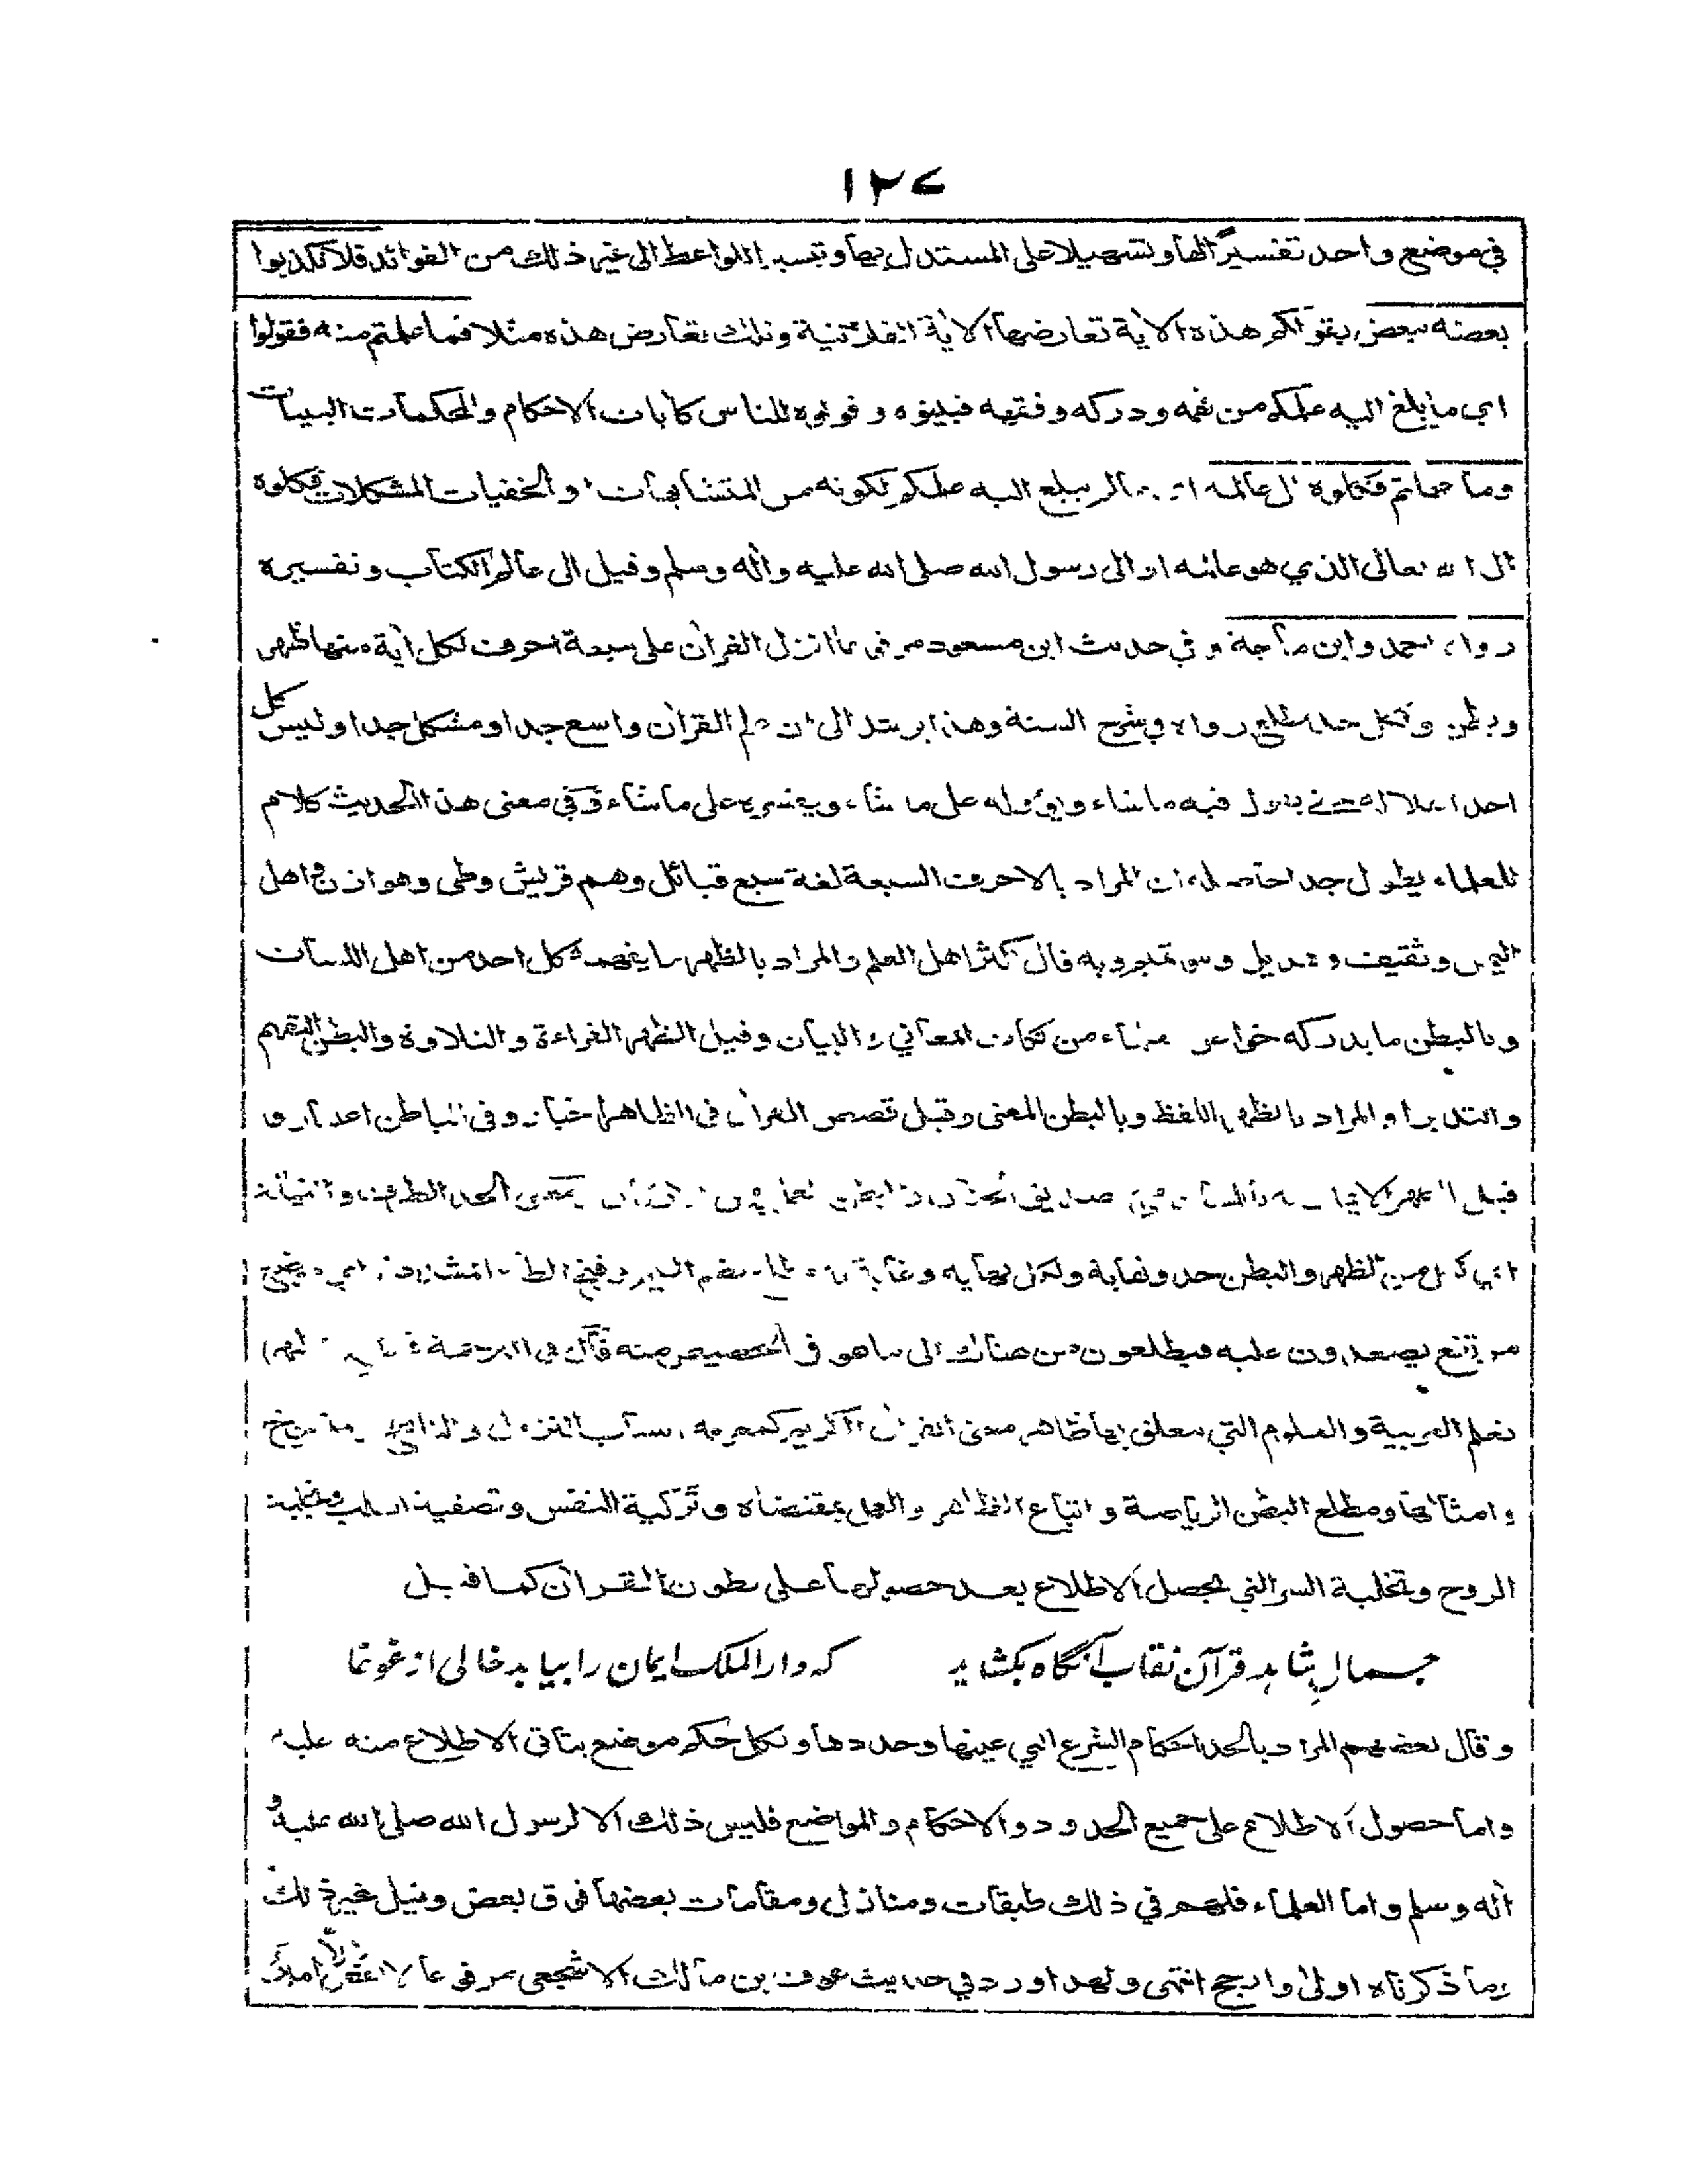 ١٢٧
في موضع واحد تفسيرًا لها وتسهيلا على المستدل بها وتيسيرا للواعظ الى غير ذلك من الفوائد فلا تكذبوا
بعضه ببعض بقولكم هذه الاية تعارضها الاية الفلانية وتلك تعارض هذه مثلا فما علمتم منه فقولوا
اي ما بلغ اليه علمكم من فهمه ودركه وفقهه فبينوه وقولوه للناس كآيات الاحكام والمحكمات البينات
وما جهلتم فكلوه الى عالمه اي ما لم يبلغ اليه علمكم لكونه من المتشابهات والخفيات المشكلات فكلوه
الى الله تعالى الذي هو عالمه او الى رسول الله صلى الله عليه وآله وسلم وقيل الى عالم الكتاب وتفسيره
رواه احمد وابن ماجة وفي حديث ابن مسعود مرفوعا انزل القرآن على سبعة احرف لكل آية منها ظهر
وبطن ولكل حد مطلع رواه في شرح السنة وهذا يرشد الى ان علم القرآن واسع جدا ومشكل جدا وليس كل
احد يقول فيه ما شاء ويؤوله على ما شاء ويفسره على ما شاء وفي معنى هذا الحديث كلام
للعلماء يطول جدا حاصله ان المراد بالاحرف السبعة لغة سبع قبائل وهم قريش وطي وهوازن واهل
اليمن وثقيف وهذيل وبنو تميم وبه قال اكثر اهل العلم والمراد بالظهر ما يفهمه كل احد من اهل اللسان
وبالبطن ما يدركه خواص من نكات المعاني والبيان وقيل الظهر القراءة والتلاوة والبطن التفهم
والتدبر او المراد بالظهر اللفظ وبالبطن المعنى وقيل قصص القرآن في الظاهر اخبار وفي الباطن اعتبار و
قيل الحد الطرف والنهاية
اي لكل من الظهر والبطن حد ونهاية ولكل نهاية وغاية مطلع بضم الميم وفتح الطاء المشددة اي موضع
مرتفع يصعدون عليه ويطلعون من هناك الى ما هو في قال في الترجمة
تعلم العربية والعلوم التي يتعلق بها ظاهر معنى القرآن الكريم كمعرفة اسباب النزول والناسخ
وامثالها ومطلع البطن الرياضة واتباع الظاهر والعمل بمقتضاه وتزكية النفس وتصفية القلب وتحلية
الروح وتخلية السر التي يحصل الاطلاع بعد حصولها على بطون القرآن كما قيل
جمال شاہد قرآن نقاب آنگاہ بکشاید کہ دار الملک ایمان را بیابد خالی از غوغا
وقال بعضهم المراد بالحد احكام الشرع التي عينها وحددها ولكل حكم موضع يتأتى الاطلاع منه عليه
واما حصول الاطلاع على جميع الحدود والاحكام والمواضع فليس ذلك الا لرسول الله صلى الله عليه و
آله وسلم واما العلماء فلهم في ذلك طبقات ومنازل ومقامات بعضها فوق بعض وقيل غير ذلك
وما ذكرناه اولى وارجح انتهى ولهذا ورد في حديث عوف بن مالك الاشجعي مرفوعا لا يقص الا امير